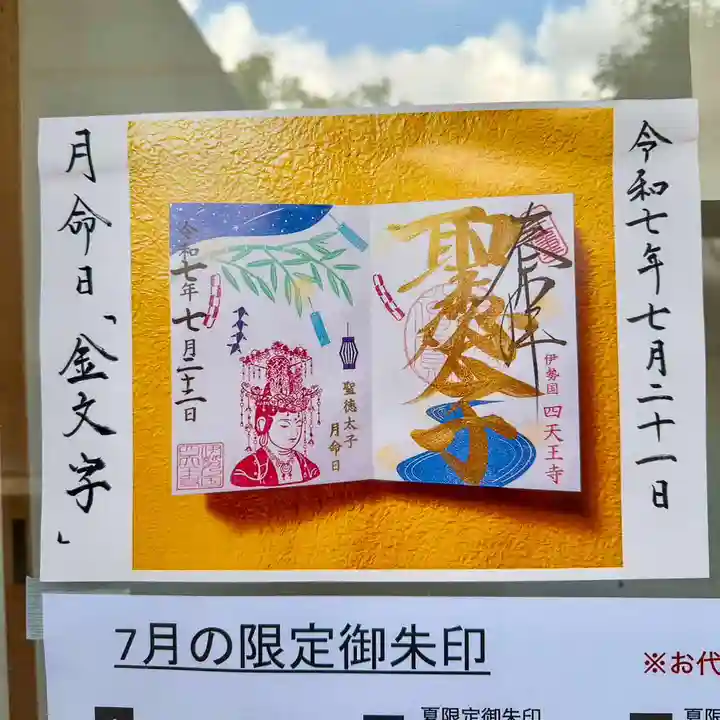 令和七年七月二十一日
奉拝
聖徳太子
伊勢国 四天王寺
聖徳太子
月命日
令和七年七月二十二日
月命日「金文字」
7月の限定御朱印
※お代
夏限定御朱印
夏限